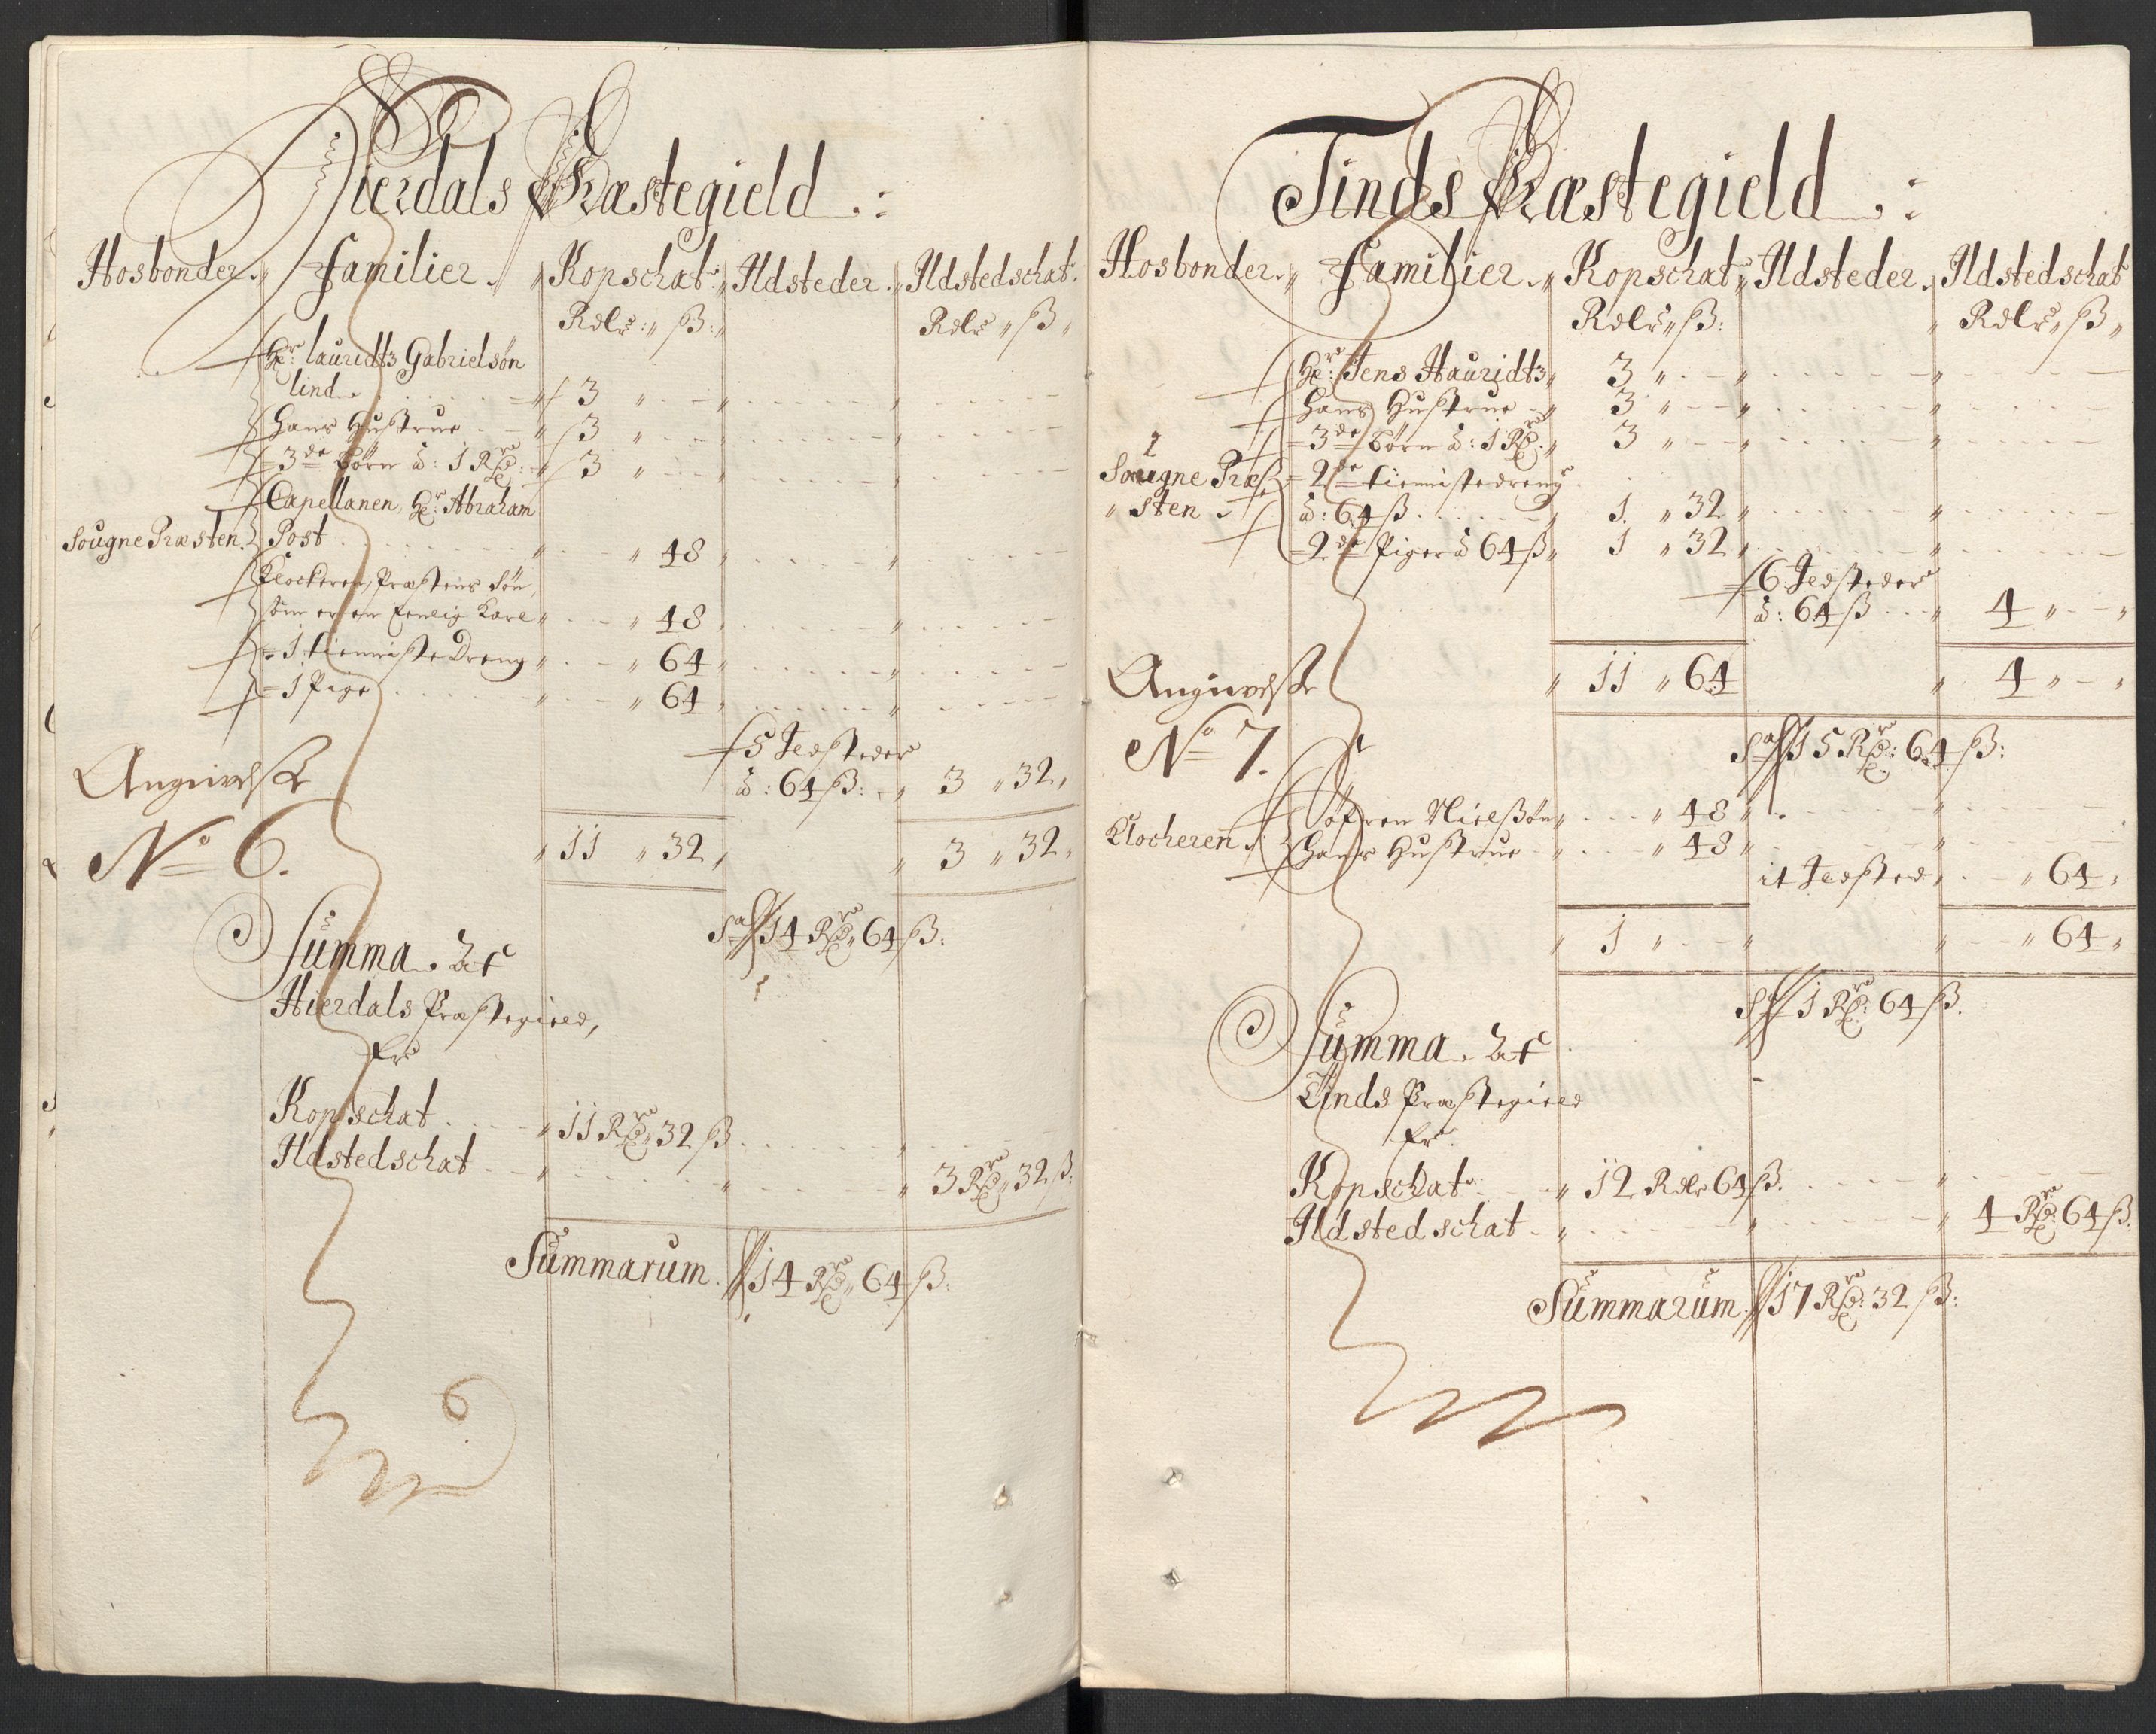 Hierdals Præstegield
Hosbonder. Familier. Kopschat. Ildsteder. Ildstedschat.
Rdlr: ß: Rdlr ß
Hr: lauridtz Gabrielsøn
lind 3
Hans Hustrue 3
3de Børn â: 1 Rdr: 3
Capellanen, Hr: Abraham
Sougne Præsten. Post 48
Klockeren, Præstens Søn,
som er en Eenlig Karl 48
1 tienniste Dreng 64
1 Pige 64
5 Ildsteder
â: 64 ß: 3 32
Angivelse
No 6. 11 32 3 32
Sa 14 Rdr 64 ß:
Summa af
Hierdals Præstegield,
Er
Kopschat 11 Rdr 32 ß
Ildstedschat 3 Rdr 32 ß:
Summarum 14 Rdr 64 ß:
6
Tinds Præstegield
Hosbonder. Familier. Kopschat Ildsteder. Ildstedschat
Rdlr ß: Rdlr ß
Hr: Jens Hauridtz 3
Hans Hustrue 3
3de Børn â: 1 Rdr 3
Sougne Præ= 2de tiennistedrenge
sten â: 64 ß 1 32
2de Piger â 64 ß 1 32
6 Ildsteder
â: 64 ß 4
Angivelse 11 64 4
No 7. Sa 15 Rdr: 64 ß:
Søfren Nielsøn 48
Klocheren. Hans Hustrue 48
it Ildsted 64
1 64
Sa 1 Rdr: 64 ß.
Summa af
Tinds Præstegield
Er
Kopschat 12 Rdlr 64 ß.
Ildstedschat 4 Rdr 64 ß.
Summarum 17 Rdr: 32 ß: